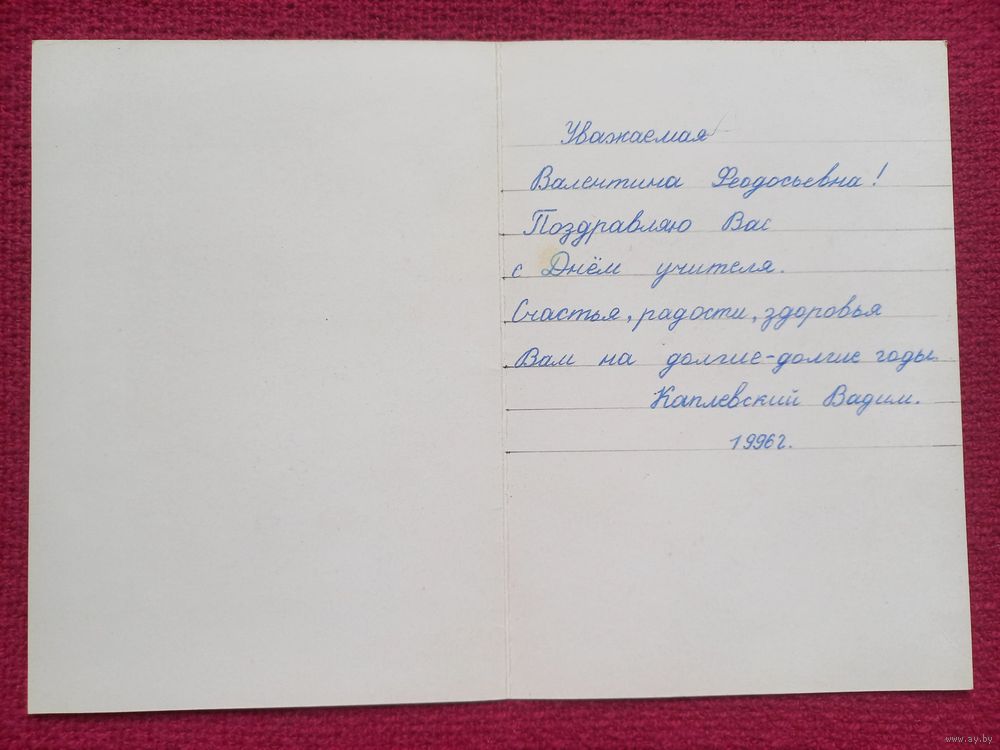 Уважаемая
Валентина Феодосьевна!
Поздравляю Вас
с Днём учителя.
Счастья, радости, здоровья
Вам на долгие-долгие годы
Каплевский Вадим.
1996г.
www.ay.by